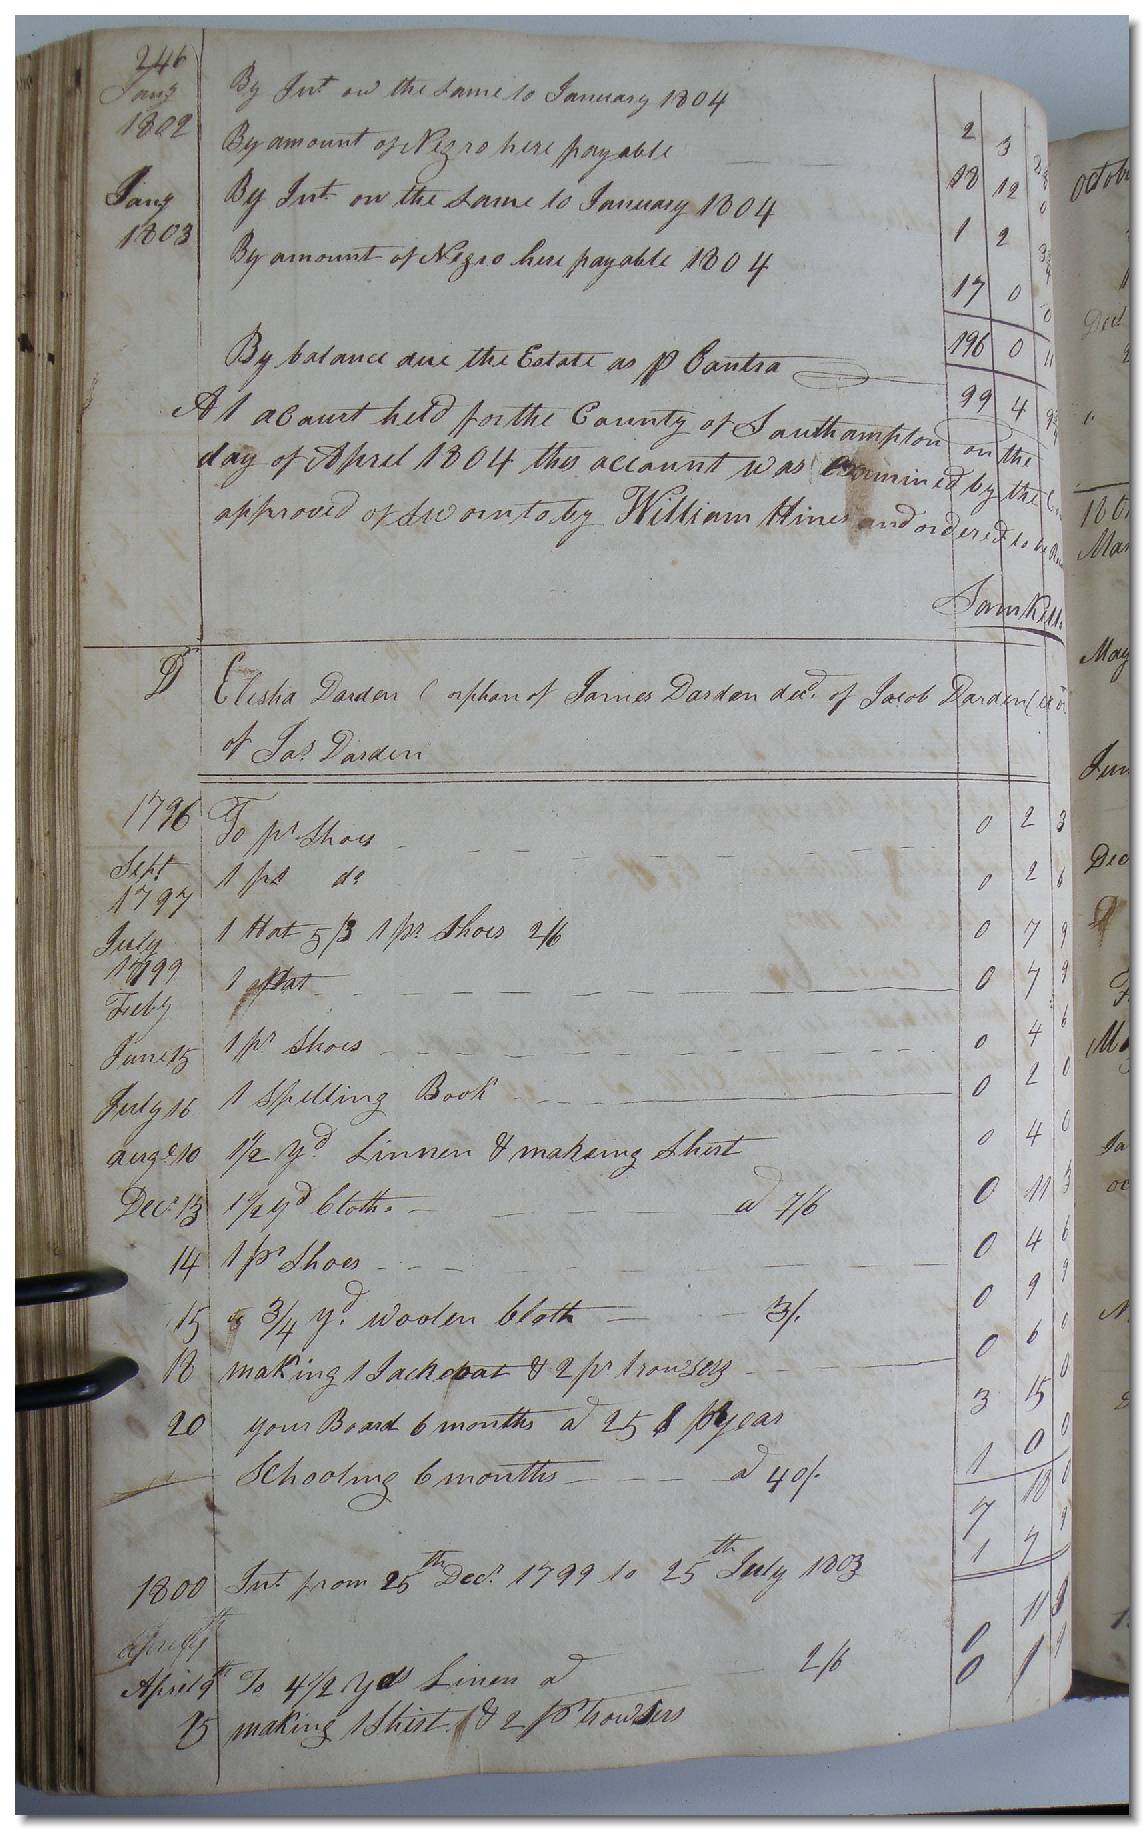 246
Jany By Int on the same to January 1804 2 3
1802 By amount of Negro hire payable 18 12 0
Jany By Int on the same to January 1804 1 2
1803 By amount of Negro hire payable 1804 17 0 0
196 0 11
By balance due the Estate as p Contra 99 4
At a Court held for the County of Southampton on the
day of April 1804 this account was examined by the
approved of Sworn to by William Hines and ordered to be
Sam Kello
Dr Elisha Darden (orphan of James Darden decd. of Jacob Darden (
of Jas Darden
1796 To pr Shoes 0 2 3
Sept 1 pr do 0 2 6
1797
July 1 Hat 5/3 1 pr Shoes 2/6 0 7 9
1799 1 Hat 0 7 9
Feby
June 15 1 pr Shoes 0 4 6
July 16 1 Spelling Book 0 2 0
Augt 10 1½ yd Linnen & making Shirt 0 4 0
Decr 13 1½ yd Cloth a 7/6 0 11 3
14 1 pr Shoes 0 4 6
15 3/4 yd. woolen Cloth 3/. 0 9 9
18 making 1 Jackcoat & 2 pr trowsers 0 6 0
20 your Board 6 months a 25 $ p year 3 15 0
Schooling 6 months a 40/. 1 0 0
7 18 0
1800 Int from 25th Decr. 1799 to 25th July 1803 1 7 9
April 9th To 4½ yds Linen a 2/6 0 11
15 making 1 Shirt & 2 pr trowsers 0 1
Octobr
Decr
180
Mar
May
Jun
Dec
Ja
oc